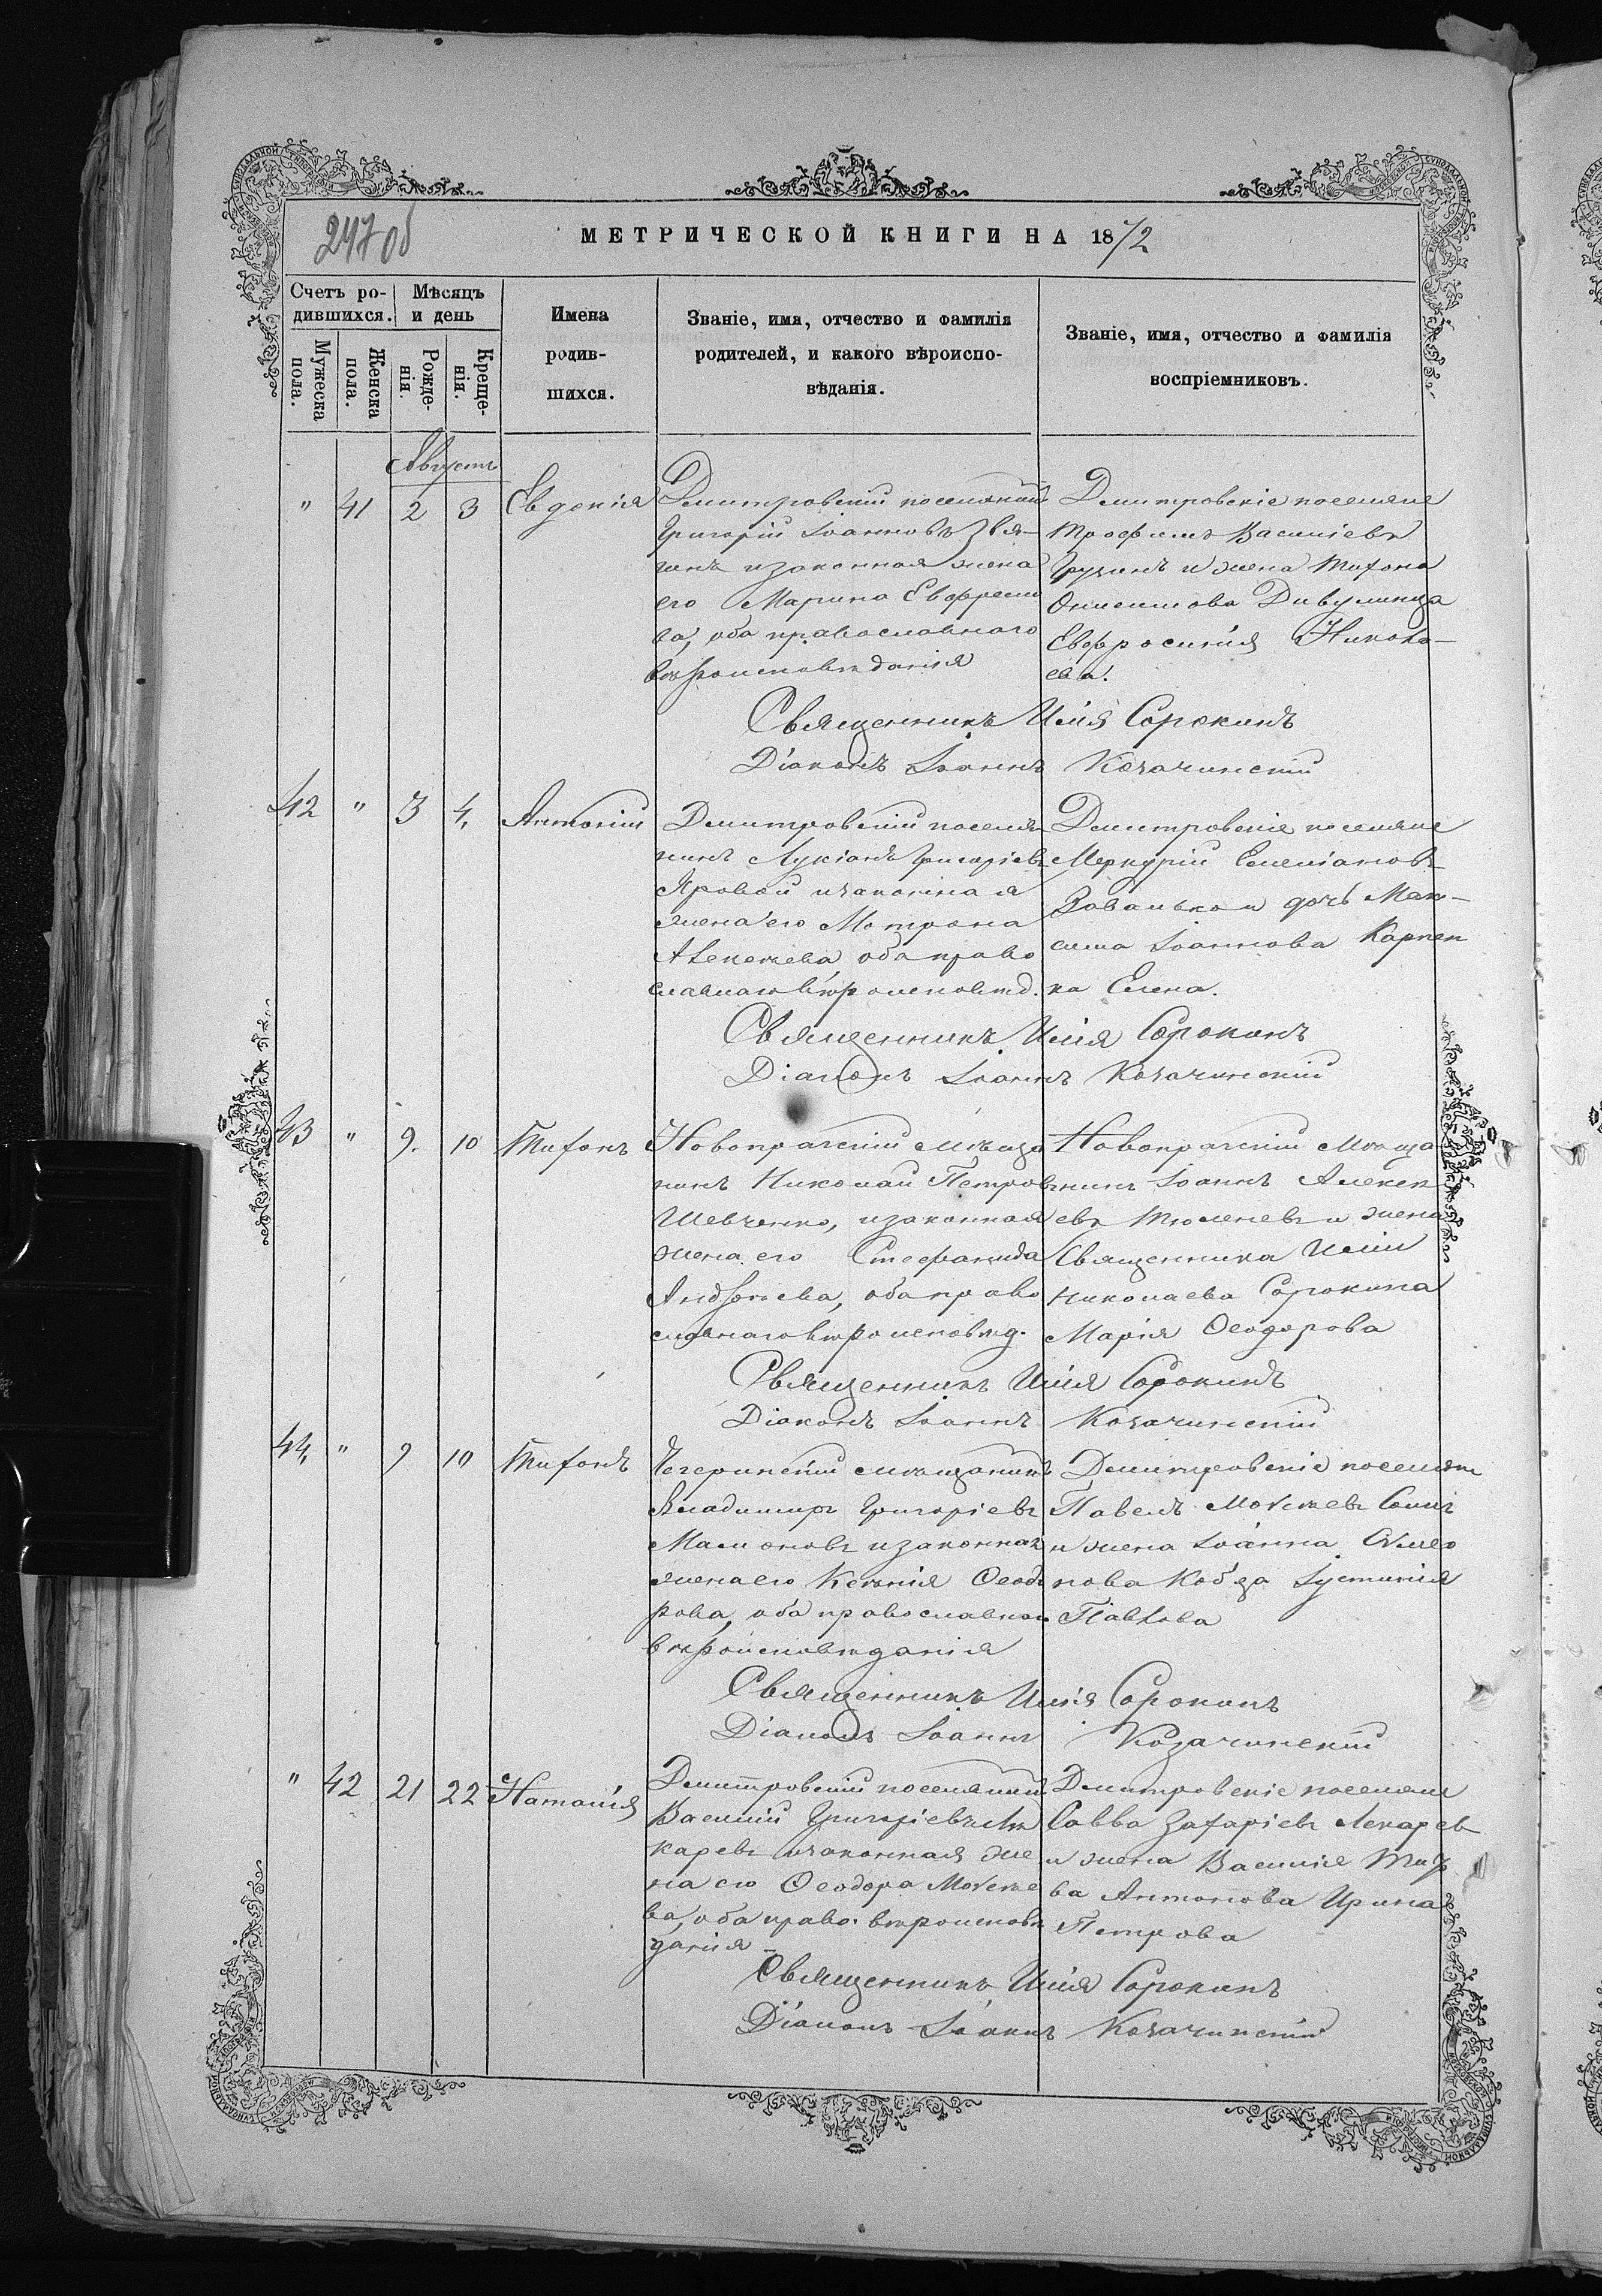 247 об
МЕТРИЧЕСКОЙ КНИГИ НА 1872
Счетъ ро-
дившихся.
Мѣсяцъ
и день
Имена
родив-
шихся.
Званіе, имя, отчество и фамилія
родителей, и какого вѣроиспо-
вѣданія.
Званіе, имя, отчество и фамилія
воспріемниковъ.
Мужеска
пола.
Женска
пола.
Рожде-
нія.
Креще-
нія.
Августъ
" 41 2 3 Евдокія
Дмитровскій поселянинъ
Григорій Іоанновъ Звя-
гинъ и законная жена
его Марина Евфреми
ва, оба православнаго
вѣроисповѣданія
Дмитровскіе поселяне
Трофимъ Василіевъ
и жена Тихона
Онисимова
Евфросинія Никола-
ева.
Священникъ Илія Сорокинъ
Діаконъ Іоаннъ Козачинскій
42 " 3 4. Антоній
Дмитровскій поселя-
нинъ Лукіанъ Григоріевъ
Яровой и законная
жена его Мотрона
Алексѣева оба право
славнаго вѣроисповѣд.
Дмитровскіе поселяне
Меркурій Емеліановъ
и дочь Мак-
сима Іоаннова Карпен
ка Елена.
Священникъ Илія Сорокинъ
Діаконъ Іоаннъ Козачинскій
43 " 9. 10 Тихонъ
Новопражскій мѣща
нинъ Николай Петровъ
Шевченко, и законная
жена его Стефанида
Андреева, оба право
славнаго вѣроисповѣд.
Новопражскій мѣща
нинъ Іоаннъ Алексѣ
евъ Тюленевъ и жена
Священника Иліи
Николаева Сорокина
Марія Ѳеодорова
Священникъ Илія Сорокинъ
Діаконъ Іоаннъ Козачинскій
44, " 9 10 Тихонъ
Чегеринскій мѣщанинъ
Владимиръ Григоріевъ
Мамоновъ и законная
жена его Ксенія Ѳеодо
рова, оба православнаго
вѣроисповѣданія
Дмитровскіе поселяне
Павелъ Моѵсеевъ
и жена Іоанна
нова Кобза Іустинія
Павлова
Священникъ Илія Сорокинъ
Діаконъ Іоаннъ Козачинскій
" 42 21 22 Наталія
Дмитровскій поселянинъ
Василій Григоріевъ Ле
каревъ и законная же
на его Ѳеодора Моѵсее
ва, оба право. вѣроисповѣ
данія
Дмитровскіе поселяне
Савва Захаріевъ Лекаревъ
и жена Василія
ва Антонова Ирина
Петрова
Священникъ Илія Сорокинъ
Діаконъ Іоаннъ Козачинскій